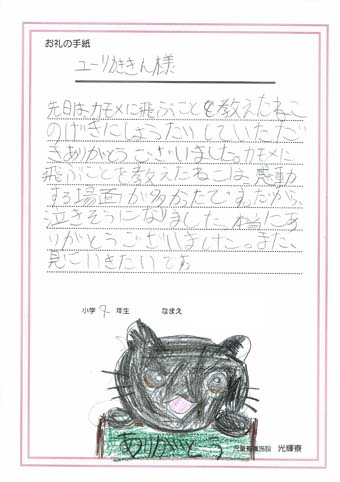 お礼の手紙
ユーリかききん様
先日は、カモメに飛ぶことを教えたねこ
のげきにしょうたいしていただ
きありがとうございました。カモメに
飛ぶことを教えたねこは、感動
する場面が多かったです。だから、
泣きそうになりました。本当にあ
りがとうございました。また、
見にいきたいです
小学 4 年生 なまえ
ありがとう
児童養護施設 光輝寮